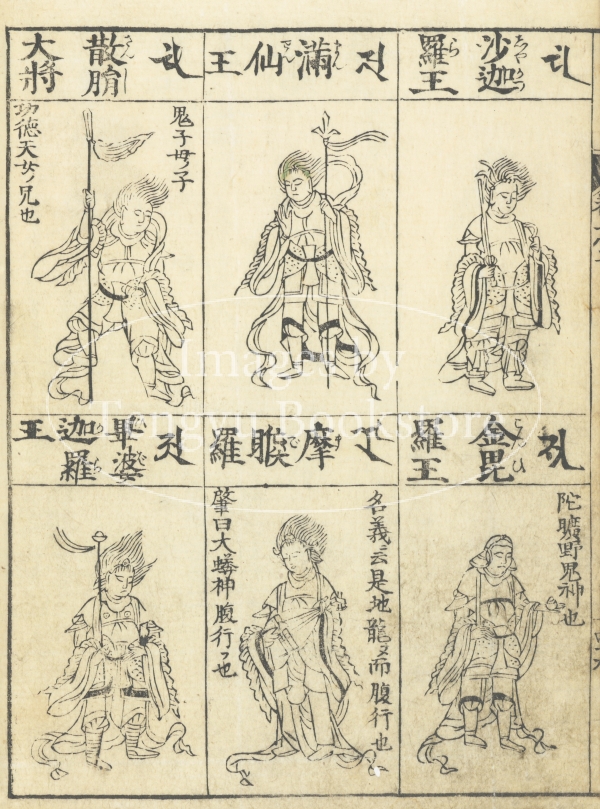 沙迦
羅王
滿仙王
散脂
大將
鬼子母ノ子
功徳天女ノ兄也
金毘
羅王
陀曠野鬼神也
摩睺羅
名義云是地龍
而腹行也
肇曰大蟒神腹行
也
畢婆
迦羅
王
Images by
Tengyu Bookstore